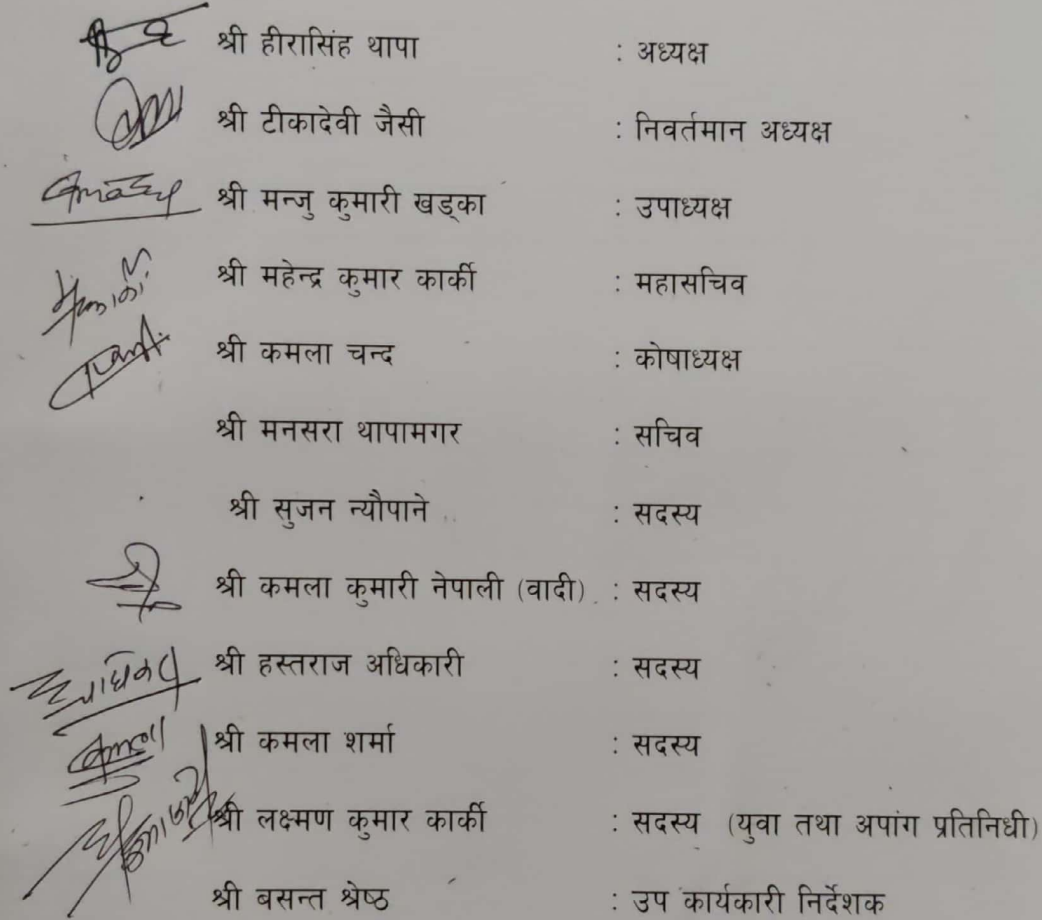 श्री हीरासिंह थापा : अध्यक्ष
श्री टीकादेवी जैसी : निवर्तमान अध्यक्ष
श्री मन्जु कुमारी खड्का : उपाध्यक्ष
श्री महेन्द्र कुमार कार्की : महासचिव
श्री कमला चन्द : कोषाध्यक्ष
श्री मनसरा थापामगर : सचिव
श्री सुजन न्यौपाने : सदस्य
श्री कमला कुमारी नेपाली (वादी) : सदस्य
श्री हस्तराज अधिकारी : सदस्य
श्री कमला शर्मा : सदस्य
श्री लक्ष्मण कुमार कार्की : सदस्य (युवा तथा अपांग प्रतिनिधी)
श्री बसन्त श्रेष्ठ : उप कार्यकारी निर्देशक